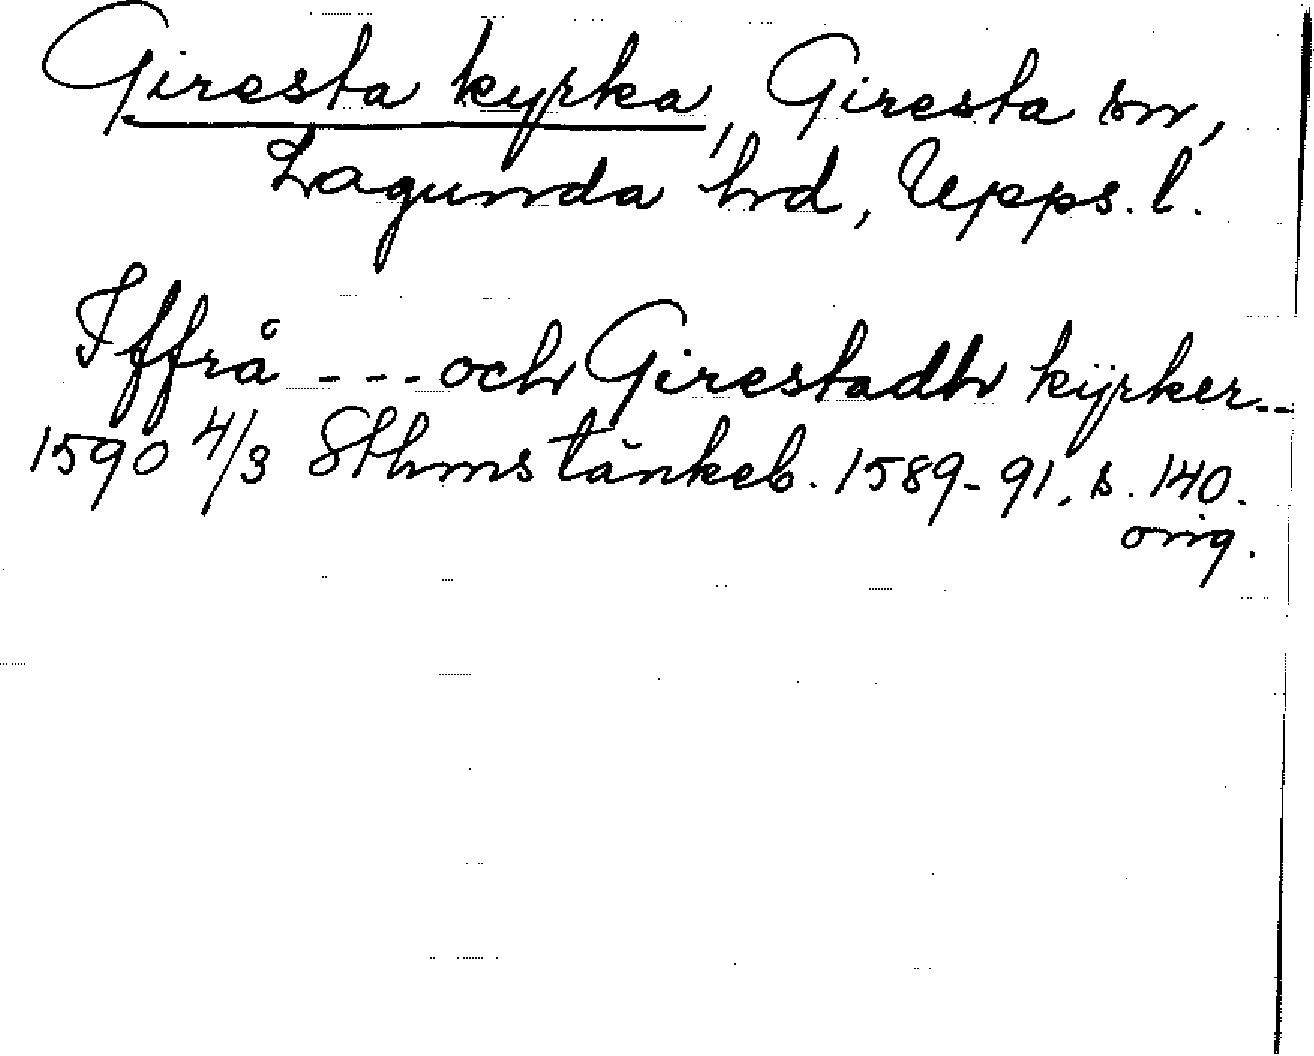 Giresta kyrka, Giresta sn,
Lagunda hd, Upps. l.
Iffrå --- och Girestadh kÿrker--
1590 4/3 Sthms tänkeb. 1589-91, s. 140.
orig.